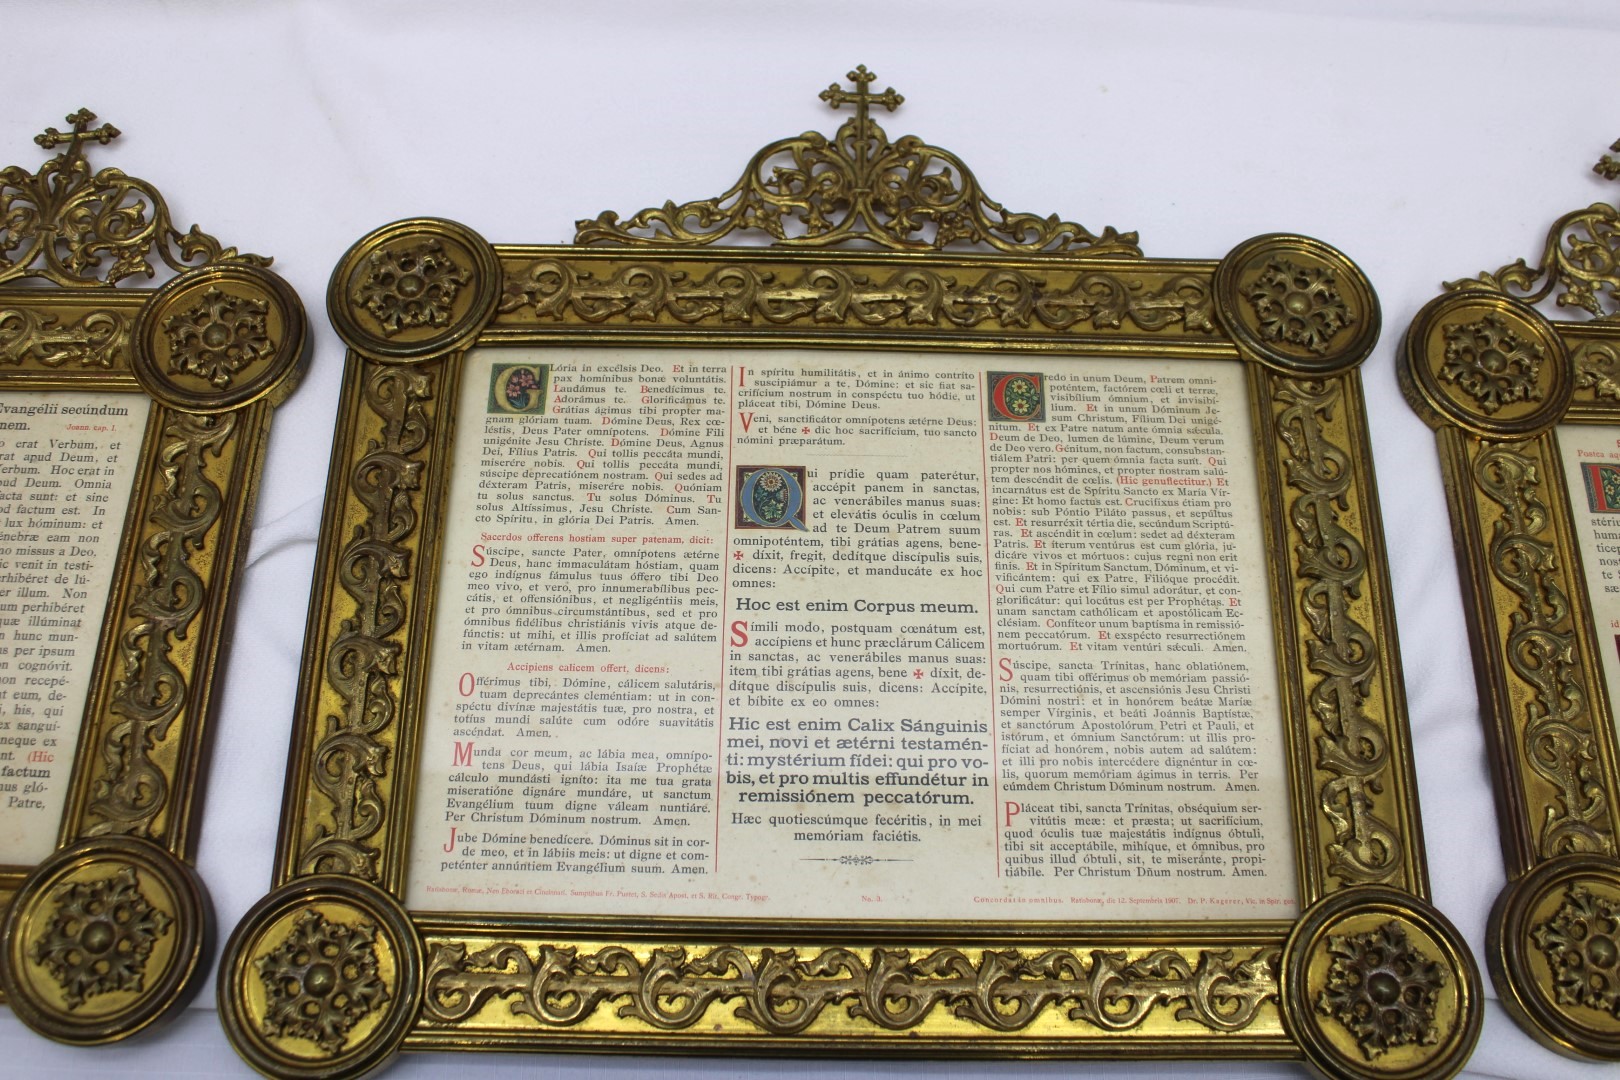 Evangélii secúndum
Joann. cap. I.
erat Verbum, et
erat apud Deum, et
Verbum. Hoc erat in
apud Deum. Omnia
facta sunt: et sine
quod factum est. In
lux hóminum: et
ténebræ eam non
missus a Deo,
venit in testi-
perhibéret de lú-
illum. Non
perhibéret
quæ illúminat
in hunc mun-
per ipsum
non cognóvit.
non recepé-
eum, de-
his, qui
ex sanguí-
neque ex
(Hic
factum
gló-
Patre,
GLória in excélsis Deo. Et in terra
pax homínibus bonæ voluntátis.
Laudámus te. Benedícimus te.
Adorámus te. Glorificámus te.
Grátias ágimus tibi propter ma-
gnam glóriam tuam. Dómine Deus, Rex cœ-
léstis, Deus Pater omnípotens. Dómine Fili
unigénite Jesu Christe. Dómine Deus, Agnus
Dei, Fílius Patris. Qui tollis peccáta mundi,
miserére nobis. Qui tollis peccáta mundi,
súscipe deprecatiónem nostram. Qui sedes ad
déxteram Patris, miserére nobis. Quóniam
tu solus sanctus. Tu solus Dóminus. Tu
solus Altíssimus, Jesu Christe. Cum San-
cto Spíritu, in glória Dei Patris. Amen.
Sacerdos offerens hostiam super patenam, dicit:
Súscipe, sancte Pater, omnípotens ætérne
Deus, hanc immaculátam hóstiam, quam
ego indígnus fámulus tuus óffero tibi Deo
meo vivo, et vero, pro innumerabílibus pec-
cátis, et offensiónibus, et negligéntiis meis,
et pro ómnibus circumstántibus, sed et pro
ómnibus fidélibus christiánis vivis atque de-
fúnctis: ut mihi, et illis profíciat ad salútem
in vitam ætérnam. Amen.
Accipiens calicem offert, dicens:
Offérimus tibi, Dómine, cálicem salutáris,
tuam deprecántes cleméntiam: ut in con-
spéctu divínæ majestátis tuæ, pro nostra, et
totíus mundi salúte cum odóre suavitátis
ascéndat. Amen.
Munda cor meum, ac lábia mea, omnípo-
tens Deus, qui lábia Isaíæ Prophétæ
cálculo mundásti igníto: ita me tua grata
miseratióne dignáre mundáre, ut sanctum
Evangélium tuum digne váleam nuntiáre.
Per Christum Dóminum nostrum. Amen.
Jube Dómine benedícere. Dóminus sit in cor-
de meo, et in lábiis meis: ut digne et com-
peténter annúntiem Evangélium suum. Amen.
In spíritu humilitátis, et in ánimo contríto
suscipiámur a te, Dómine: et sic fiat sa-
crifícium nostrum in conspéctu tuo hódie, ut
pláceat tibi, Dómine Deus.
Veni, sanctificátor omnípotens ætérne Deus:
et béne ✠ dic hoc sacrifícium, tuo sancto
nómini præparátum.
Qui prídie quam paterétur,
accépit panem in sanctas,
ac venerábiles manus suas:
et elevátis óculis in cœlum
ad te Deum Patrem suum
omnipoténtem, tibi grátias agens, bene-
✠ díxit, fregit, dedítque discípulis suis,
dicens: Accípite, et manducáte ex hoc
omnes:
Hoc est enim Corpus meum.
Símili modo, postquam cœnátum est,
accípiens et hunc præclárum Cálicem
in sanctas, ac venerábiles manus suas:
item tibi grátias agens, bene ✠ díxit, de-
dítque discípulis suis, dicens: Accípite,
et bíbite ex eo omnes:
Hic est enim Calix Sánguinis
mei, novi et ætérni testamén-
ti: mystérium fídei: qui pro vo-
bis, et pro multis effundétur in
remissiónem peccatórum.
Hæc quotiescúmque fecéritis, in mei
memóriam faciétis.
Credo in unum Deum, Patrem omni-
poténtem, factórem cœli et terræ,
visibílium ómnium, et invisibí-
lium. Et in unum Dóminum Je-
sum Christum, Fílium Dei unigé-
nitum. Et ex Patre natum ante ómnia sǽcula.
Deum de Deo, lumen de lúmine, Deum verum
de Deo vero. Génitum, non factum, consubstan-
tiálem Patri: per quem ómnia facta sunt. Qui
propter nos hómines, et propter nostram salú-
tem descéndit de cœlis. (Hic genuflectitur.) Et
incarnátus est de Spíritu Sancto ex María Vír-
gine: Et homo factus est. Crucifíxus étiam pro
nobis: sub Póntio Piláto passus, et sepúltus
est. Et resurréxit tértia die, secúndum Scriptú-
ras. Et ascéndit in cœlum: sedet ad déxteram
Patris. Et íterum ventúrus est cum glória, ju-
dicáre vivos et mórtuos: cujus regni non erit
finis. Et in Spíritum Sanctum, Dóminum, et vi-
vificántem: qui ex Patre, Filióque procédit.
Qui cum Patre et Fílio simul adorátur, et con-
glorificátur: qui locútus est per Prophétas. Et
unam sanctam cathólicam et apostólicam Ec-
clésiam. Confíteor unum baptísma in remissió-
nem peccatórum. Et exspécto resurrectiónem
mortuórum. Et vitam ventúri sǽculi. Amen.
Súscipe, sancta Trínitas, hanc oblatiónem,
quam tibi offérimus ob memóriam passió-
nis, resurrectiónis, et ascensiónis Jesu Christi
Dómini nostri: et in honórem beátæ Maríæ
semper Vírginis, et beáti Joánnis Baptístæ,
et sanctórum Apostolórum Petri et Pauli, et
istórum, et ómnium Sanctórum: ut illis pro-
fíciat ad honórem, nobis autem ad salútem:
et illi pro nobis intercédere dignéntur in cœ-
lis, quorum memóriam ágimus in terris. Per
eúmdem Christum Dóminum nostrum. Amen.
Pláceat tibi, sancta Trínitas, obséquium ser-
vitútis meæ: et præsta; ut sacrifícium,
quod óculis tuæ majestátis indígnus óbtuli,
tibi sit acceptábile, mihíque, et ómnibus, pro
quibus illud óbtuli, sit, te miseránte, propi-
tiábile. Per Christum Dñum nostrum. Amen.
Ratisbonæ, Romæ, Neo Eboraci et Cincinnati. Sumptibus Fr. Pustet, S. Sedis Apost. et S. Rit. Congr. Typogr.
No. 3.
Concordat cum omnibus. Ratisbonæ, die 12. Septembris 1907. Dr. P. Kagerer, Vic. in Spir. gen.
Postea